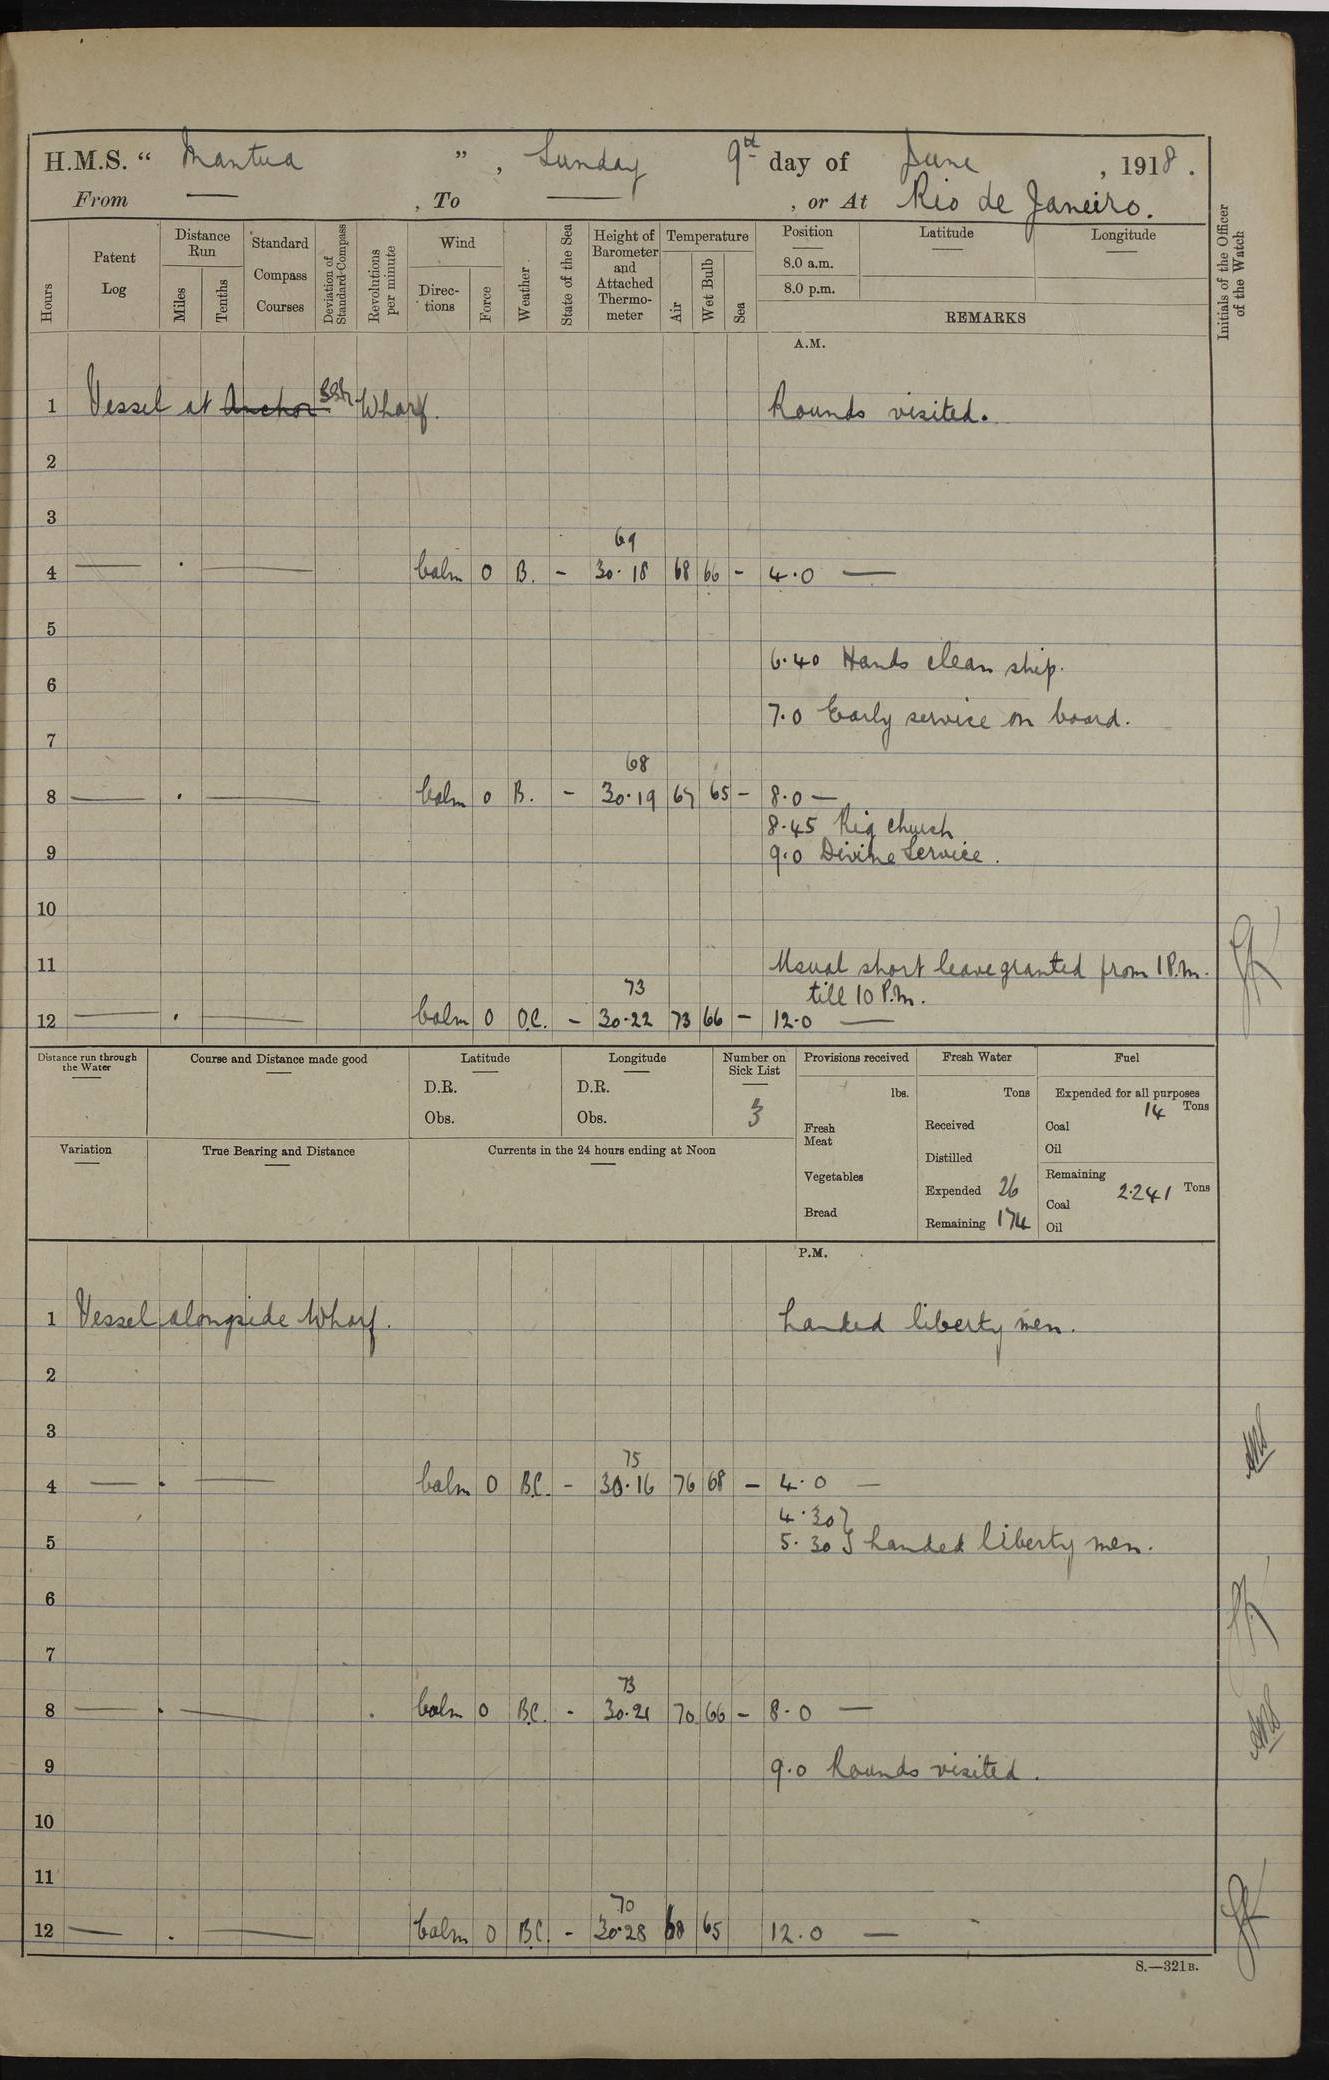 H.M.S. “ Mantua ” , Sunday 9th day of June , 1918 .
From — , To — , or At Rio de Janeiro.
Hours
Patent Log
Distance Run
Miles
Tenths
Standard Compass Courses
Deviation of Standard Compass
Revolutions per minute
Wind
Direc-tions
Force
Weather
State of the Sea
Height of Barometer and Attached Thermo-meter
Temperature
Air
Wet Bulb
Sea
Position
8.0 a.m.
8.0 p.m.
Latitude
Longitude
REMARKS
Initials of the Officer of the Watch
A.M.
1 Vessel at Anchor Wharf. Rounds visited.
2
3
69
4 — . — Calm 0 B. - 30.18 68 66 - 4.0 —
5
6.40 Hands clean ship.
6
7.0 Early service on board.
7
68
8 — . — Calm 0 B. - 30.19 67 65 - 8.0 —
8.45 Rig Church
9 9.0 Divine Service.
10
11 Usual short leave granted from 1 P.m.
73 till 10 P.m.
12 — . — Calm 0 O.C. - 30.22 73 66 - 12.0 —
Distance run through the Water
Course and Distance made good
Latitude
D.R.
Obs.
Longitude
D.R.
Obs.
Number on Sick List
3
Provisions received
lbs.
Fresh Meat
Vegetables
Bread
Fresh Water
Tons
Received
Distilled
Expended 26
Remaining 174
Fuel
Expended for all purposes
14 Tons
Coal
Oil
Remaining
2.241 Tons
Coal
Oil
Variation
True Bearing and Distance
Currents in the 24 hours ending at Noon
P.M.
1 Vessel alongside Wharf. Landed liberty men.
2
3
75
4 — . — Calm 0 B.C. - 30.16 76 68 - 4.0 —
4.30 }
5 5.30 } Landed liberty men.
6
7
73
8 — . — . Calm 0 B.C. - 30.21 70 66 - 8.0 —
9 9.0 Rounds visited.
10
11
70
12 — . — Calm 0 B.C. - 30.28 68 65 12.0 —
S.—321B.